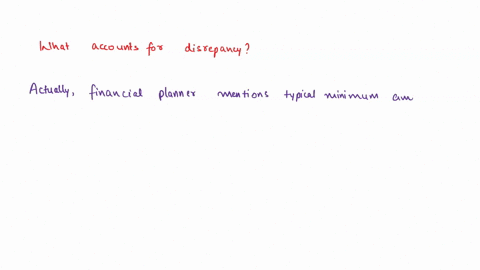 What accounts for disrepancy?
Actually, financial planner mentions typical minimum am